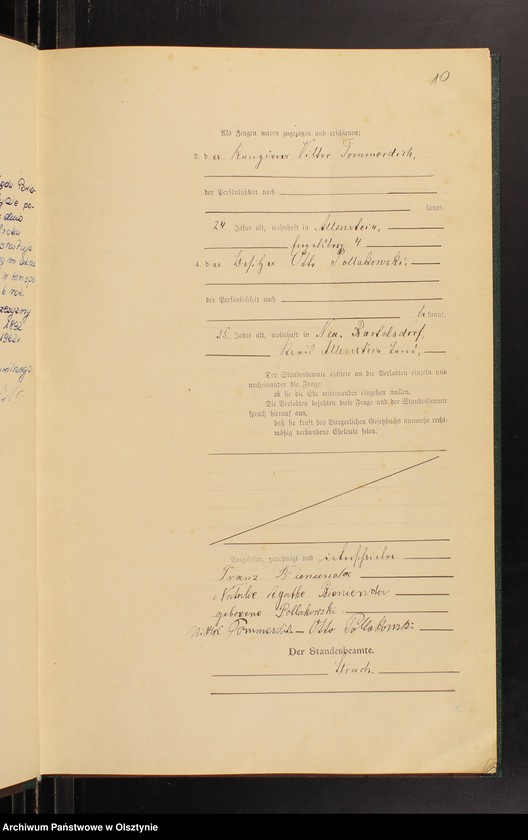 10
Als Zeugen waren zugezogen und erschienen:
3. der Kanzinor Viktor Tommerdich,
der Persönlichkeit nach
kannt,
24 Jahre alt, wohnhaft in Allenstein,
4
4. der Besitzer Otto Pollakowski,
der Persönlichkeit nach
bekannt,
38 Jahre alt, wohnhaft in Neu Bartelsdorf,
Kreis Allenstein Land,
Der Standesbeamte richtete an die Verlobten einzeln und
nacheinander die Frage:
ob sie die Ehe miteinander eingehen wollen.
Die Verlobten bejahten diese Frage und der Standesbeamte
sprach hierauf aus,
daß sie kraft des Bürgerlichen Gesetzbuchs nunmehr recht-
mäßig verbundene Eheleute seien.
Vorgelesen, genehmigt und unterschrieben
Franz
Natalie Agathe
geborene Pollakowski
Viktor Tommerdich – Otto Pollakowski
Der Standesbeamte.
1892
1962
Archiwum Państwowe w Olsztynie